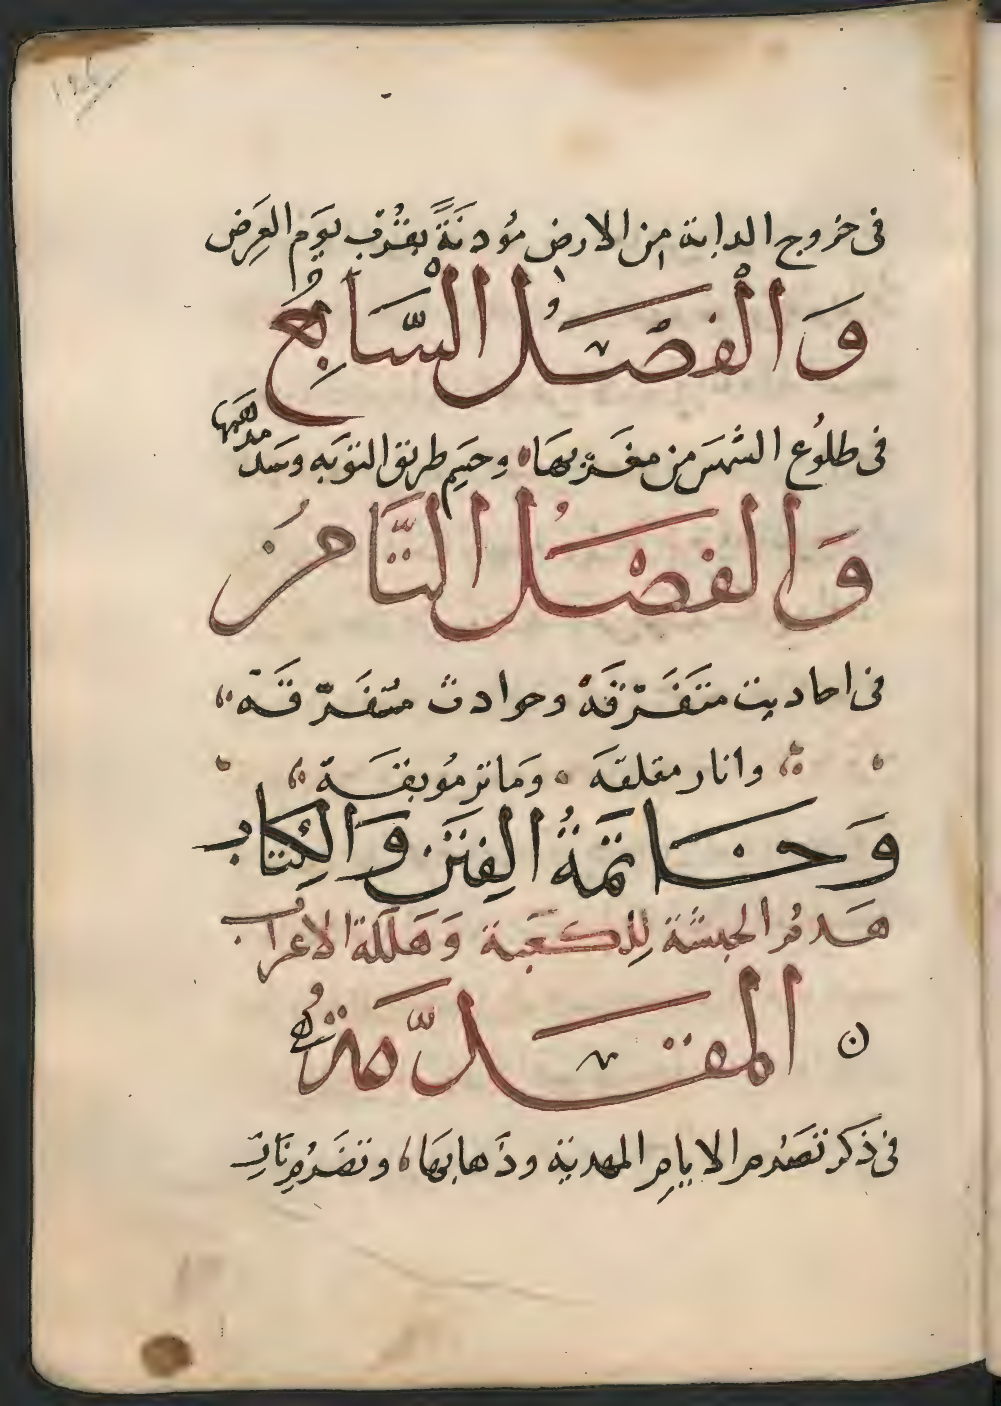 ١٢٤
فى خروج الدابة من الارض مؤذنةً بقُرْب يَوم العَرِض
وَالْفَصْلُ السَّابِعُ
فى طلوُع الشمسَ من مغَرْبهَا وحسَم طريق التوَبه وسَد مذهبها
وَالفَصْلُ الثَّامِنُ
فى احاديث متَفَرّقةَ وحوادث متفَرّقَة
واثار مقلقةَ وَماثر مُوبقَة
وَخَاتمَةُ الفِتَن وَالكِتابِ
هَدمُ الحَبشَة لِلكعَبة وَهَلَكَة الاعرابُ
المقَدّمَةُ
فى ذكر تَصَرُم الايام المهدية وذَهابهَا وتصَرُم